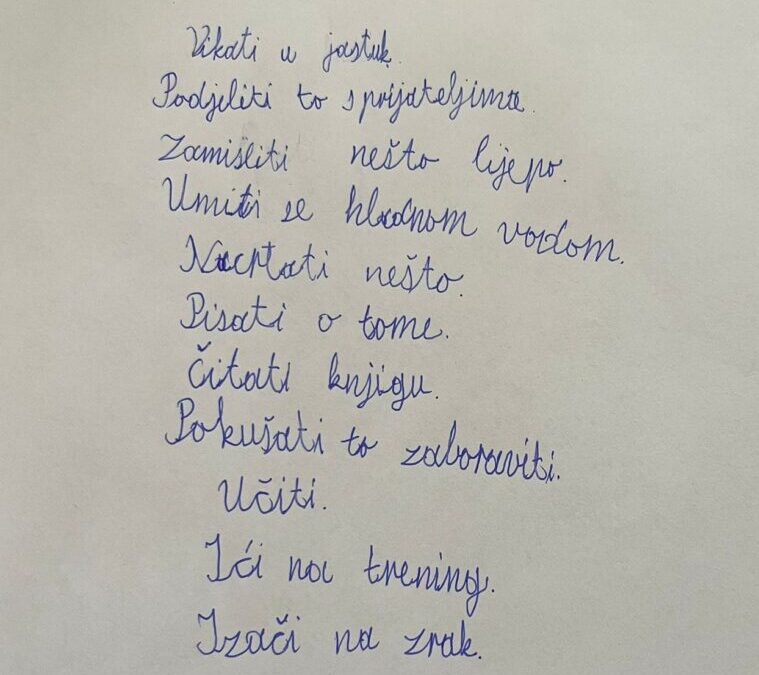 Vikati u jastuk.
Podjeliti to s prijateljima.
Zamišliti nešto lijepo.
Umiti se hladnom vodom.
Nacrtati nešto.
Pisati o tome.
Čitati knjigu.
Pokušati to zaboraviti.
Učiti.
Ići na trening.
Izači na zrak.